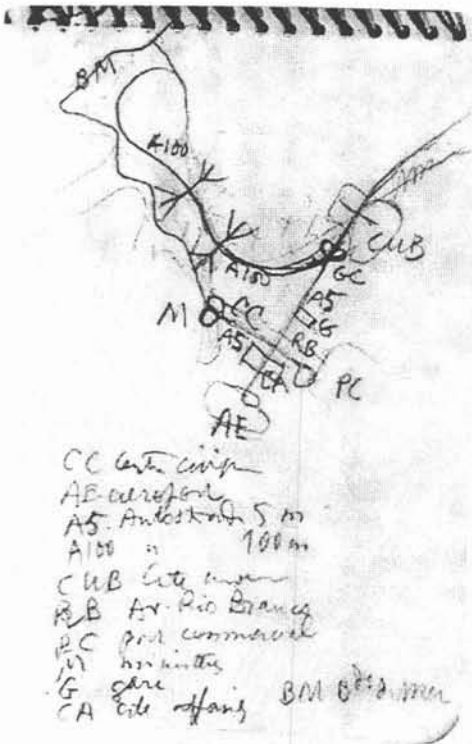 BM
A100
CUB
A100
GC
A5
M
CC
G
A5
RB
CA
PC
AE
CC Centre civique
AE aeroport
A5. Autostrade 5 m
A100 " 100 m
CUB Cite
RB Av. Rio Branco
PC port commercial
M ministères
G gare
CA cité affaires
BM Bd mer